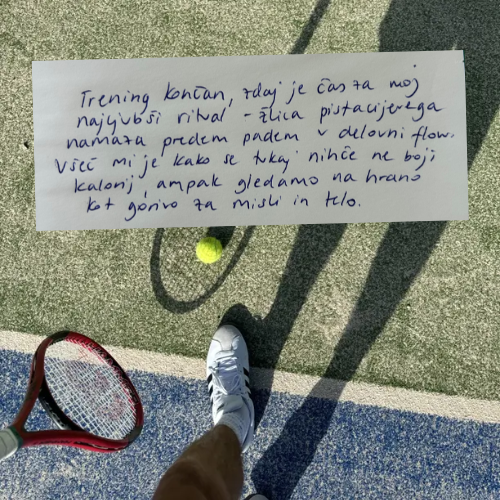 Trening končan, zdaj je čas za moj
najljubši ritual - žlica pistacijevega
namaza predem padem v delovni flow.
Všeč mi je kako se tukaj nihče ne boji
kalorij, ampak gledamo na hrano
kot gorivo za misli in telo.